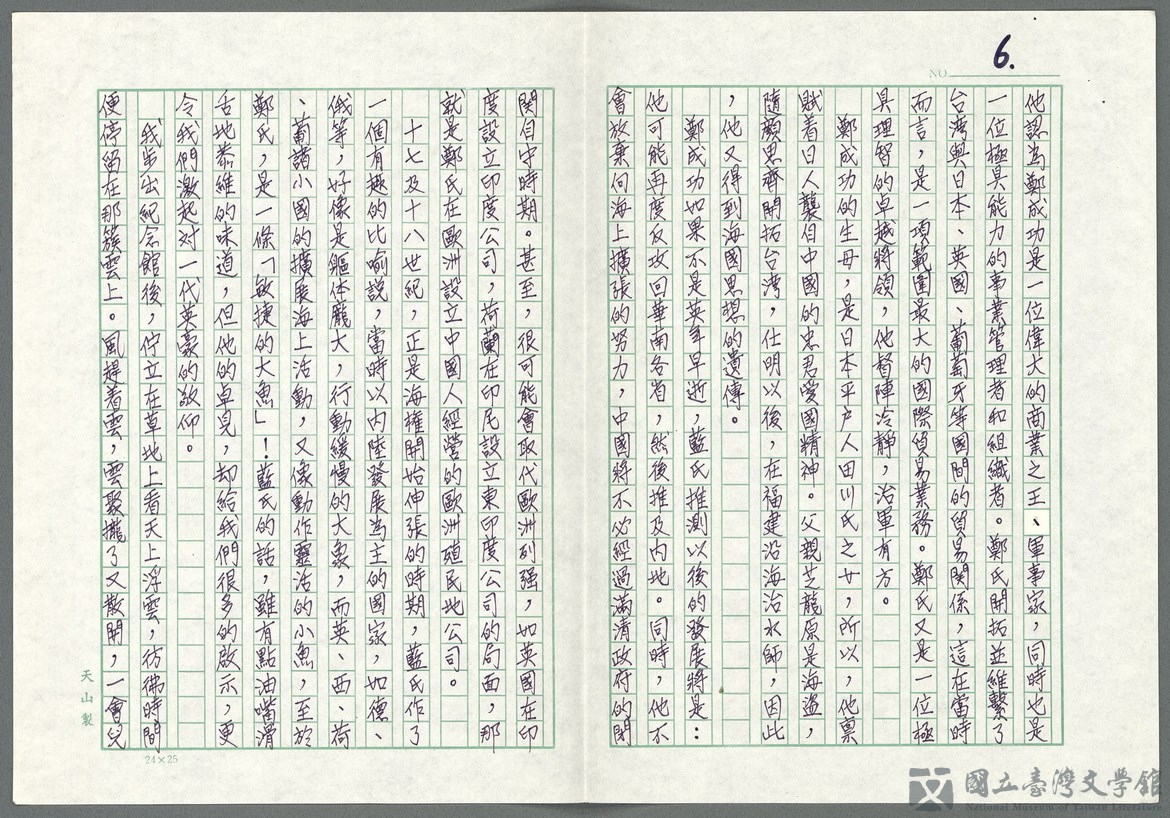 6.
NO.
他認為鄭成功是一位偉大的商業之王、軍事家,同時也是
一位極具能力的事業管理者和組織者。鄭氏開拓並維繫了
台灣與日本、英國、葡萄牙等國間的貿易関係,這在當時
而言,是一項範圍最大的國際貿易業務。鄭氏又是一位極
具理智的卓越將領,他督陣冷靜,治軍有方。
鄭成功的生母,是日本平户人田川氏之女,所以,他禀
賦着日人襲自中國的忠君愛國精神。父親芝龍原是海盗,
隨顏思齊開拓台灣,仕明以後,在福建沿海治水師,因此
,他又得到海國思想的遺傳。
鄭成功如果不是英年早逝,藍氏推測以後的發展將是:
他可能再度反攻回華南各省,然後推及內地。同時,他不
會放棄向海上擴張的努力,中國將不必經過滿清政府的閉
関自守時期。甚至,很可能會取代歐洲列强,如英國在印
度設立印度公司,荷蘭在印尼設立東印度公司的局面,那
就是鄭氏在歐洲設立中國人經營的歐洲殖民地公司。
十七及十八世紀,正是海權開始伸張的時期,藍氏作了
一個有趣的比喻說,當時以內陸發展為主的國家,如德、
俄等,好像是軀体龐大,行動緩慢的大象,而英、西、荷
、葡諸小國的擴展海上活動,又像動作靈活的小魚,至於
鄭氏,是一條「敏捷的大魚」!藍氏的話,雖有點油嘴滑
舌地恭維的味道,但他的卓見,却給我們很多的啟示,更
令我們激起对一代英豪的敬仰。
我步出紀念館後,佇立在草地上看天上浮雲,彷彿時間
便停留在那簇雲上。風趕着雲,雲聚攏了又散開,一會兒
天山製
24×25
國立臺灣文學館
National Museum of Taiwan Literature